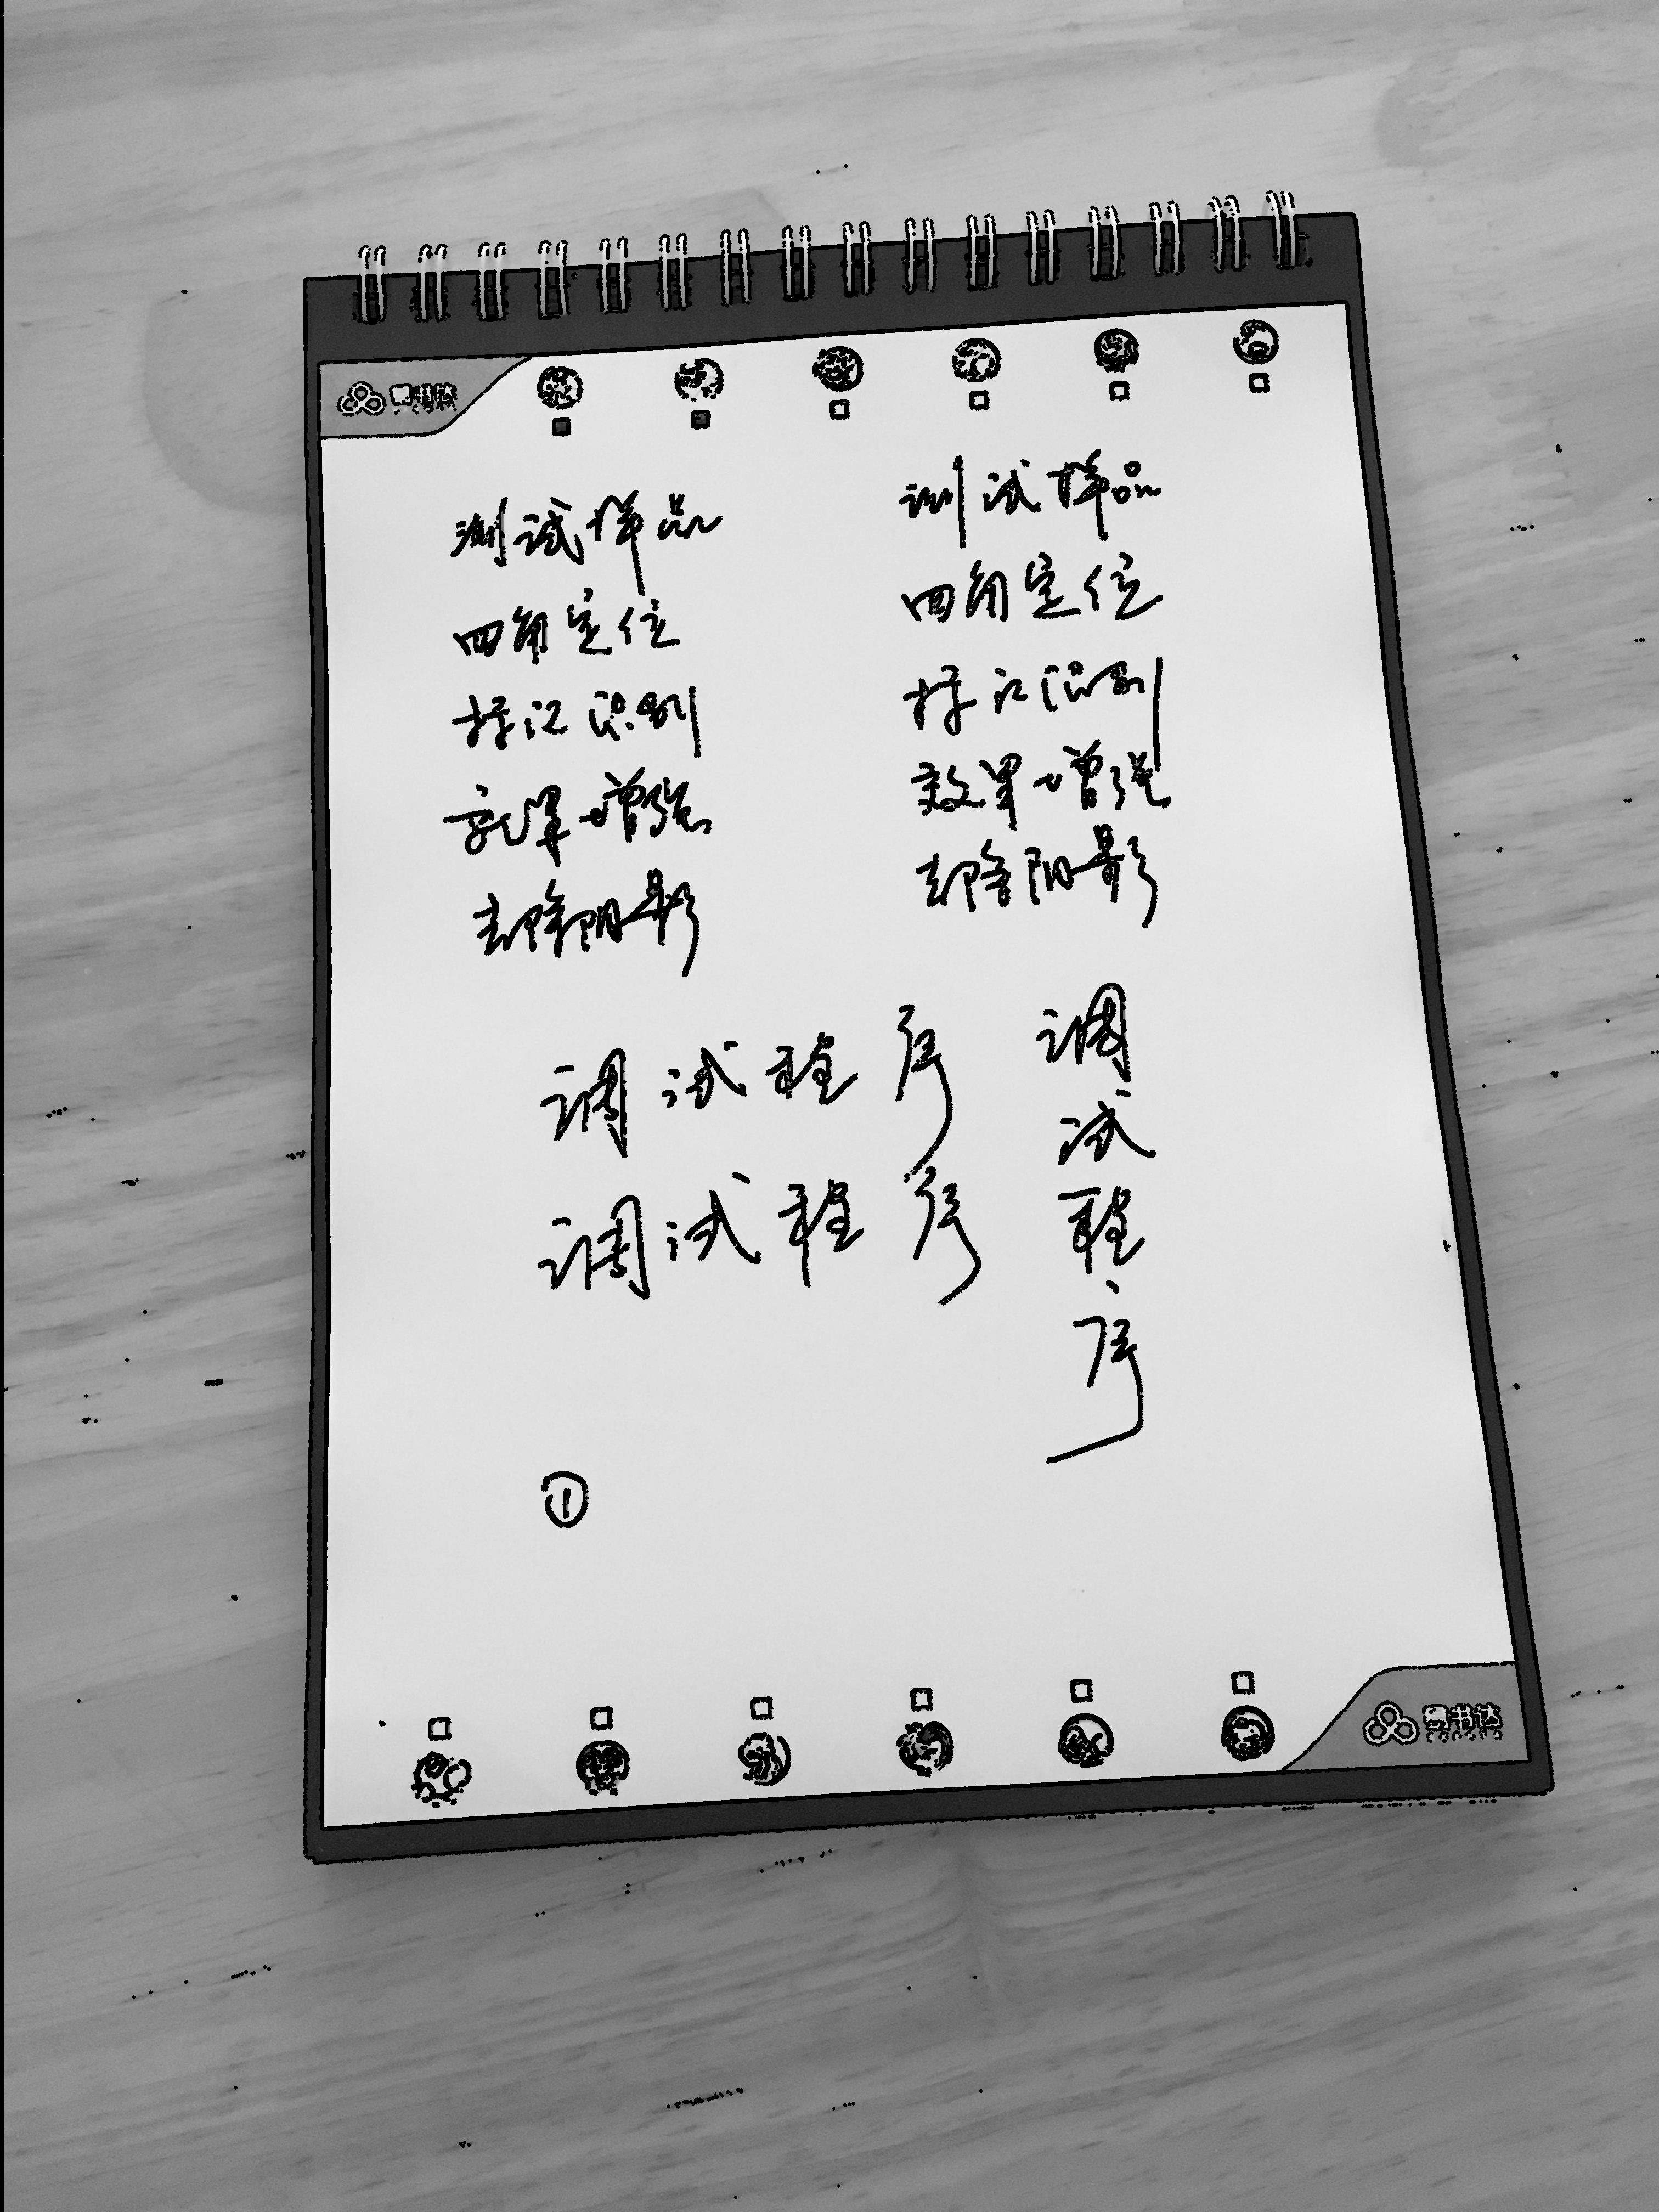 测试样品
四角定位
标记识别
效果增强
去除阴影
测试样品
四角定位
标记识别
效果增强
去除阴影
调试程序
调试程序
调试程序
①